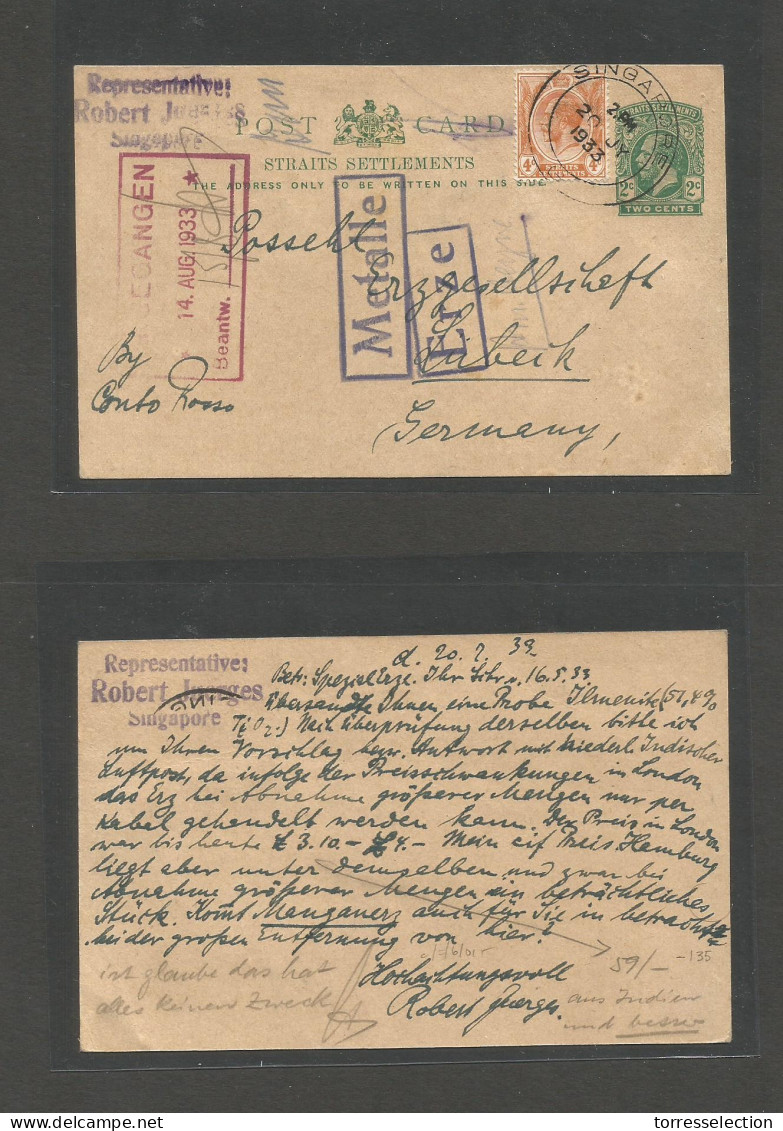 Representative:
Robert Juerges
Singapore
POST CARD
STRAITS SETTLEMENTS
THE ADDRESS ONLY TO BE WRITTEN ON THIS SIDE.
4c STRAITS SETTLEMENTS 4c
SINGAPORE
2 PM
20 JY
1933
STRAITS SETTLEMENTS
2c 2c
TWO CENTS
EGANGEN
14. AUG. 1933 ★
Beantw.
Metalle
Erze
Possehl
Erzgesellschaft
Lübeck
Germany,
By
Conto Rosso
Representative:
Robert Juerges
Singapore
d. 20. 7. 33.
Betr: Spezial Erze. Ihr Schr. v. 16.5.33.
Übersandte Ihnen eine Probe Ilmenite (51,4%
TiO2.) Nach Überprüfung derselben bitte ich
um Ihren Vorschlag bezw. Antwort mit Niederl Indischer
Luftpost, da infolge der Preisschwankungen in London
das Erz bei Abnahme größerer Mengen nur per
Kabel gehandelt werden kann. Der Preis in London
war bis heute £ 3.10.- £4.- Mein cif Preis Hamburg
liegt aber unter demselben und zwar bei
Abnahme größerer Mengen ein beträchtliches
Stück. Komt Manganerz auch für Sie in betracht
bei der großen Entfernung von hier?
59/- -135
Hochachtungsvoll
Robert Juerges.
ich glaube das hat
alles keinen Zweck
aus Indien
und besser
delcampe.net
torresselection